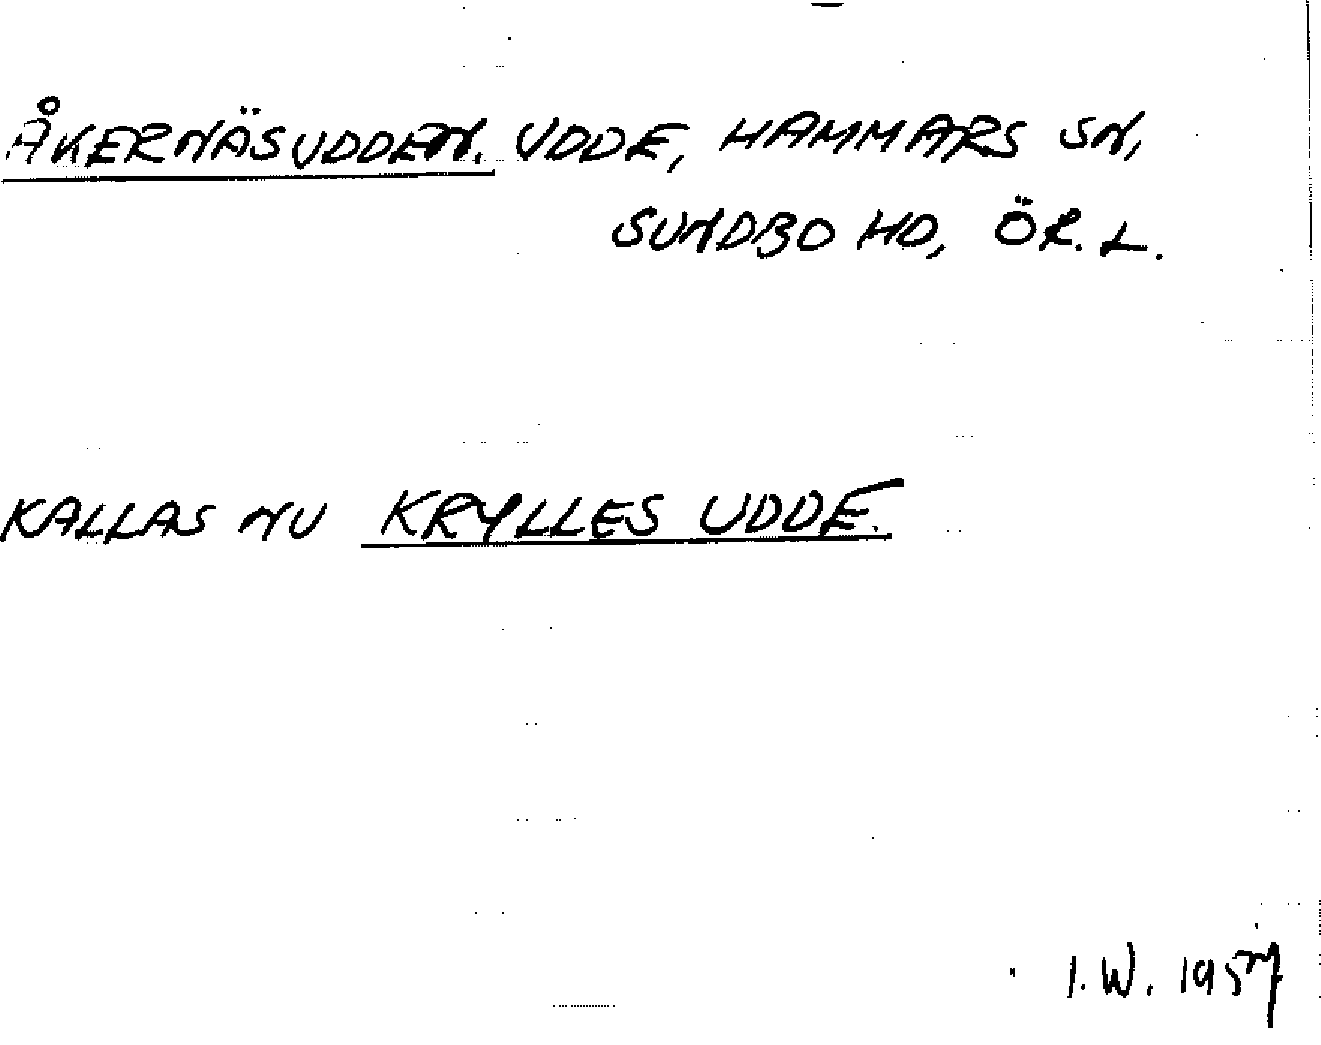 ÅKERNÄSUDDEN. UDDE, HAMMARS SN,
SUNDBO HD, ÖR. L.
KALLAS NU KRYLLES UDDE.
I. W. 1957